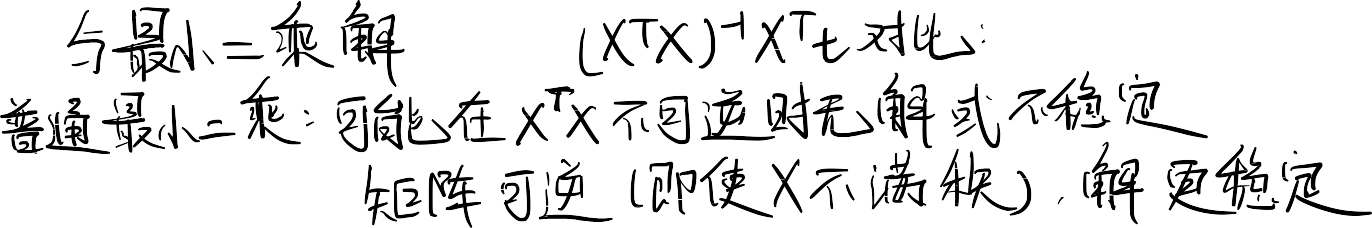 与最小二乘解 (XᵀX)⁻¹Xᵀt 对比:
普通最小二乘: 可能在 XᵀX 不可逆时无解或不稳定
矩阵可逆 (即使X不满秩), 解更稳定